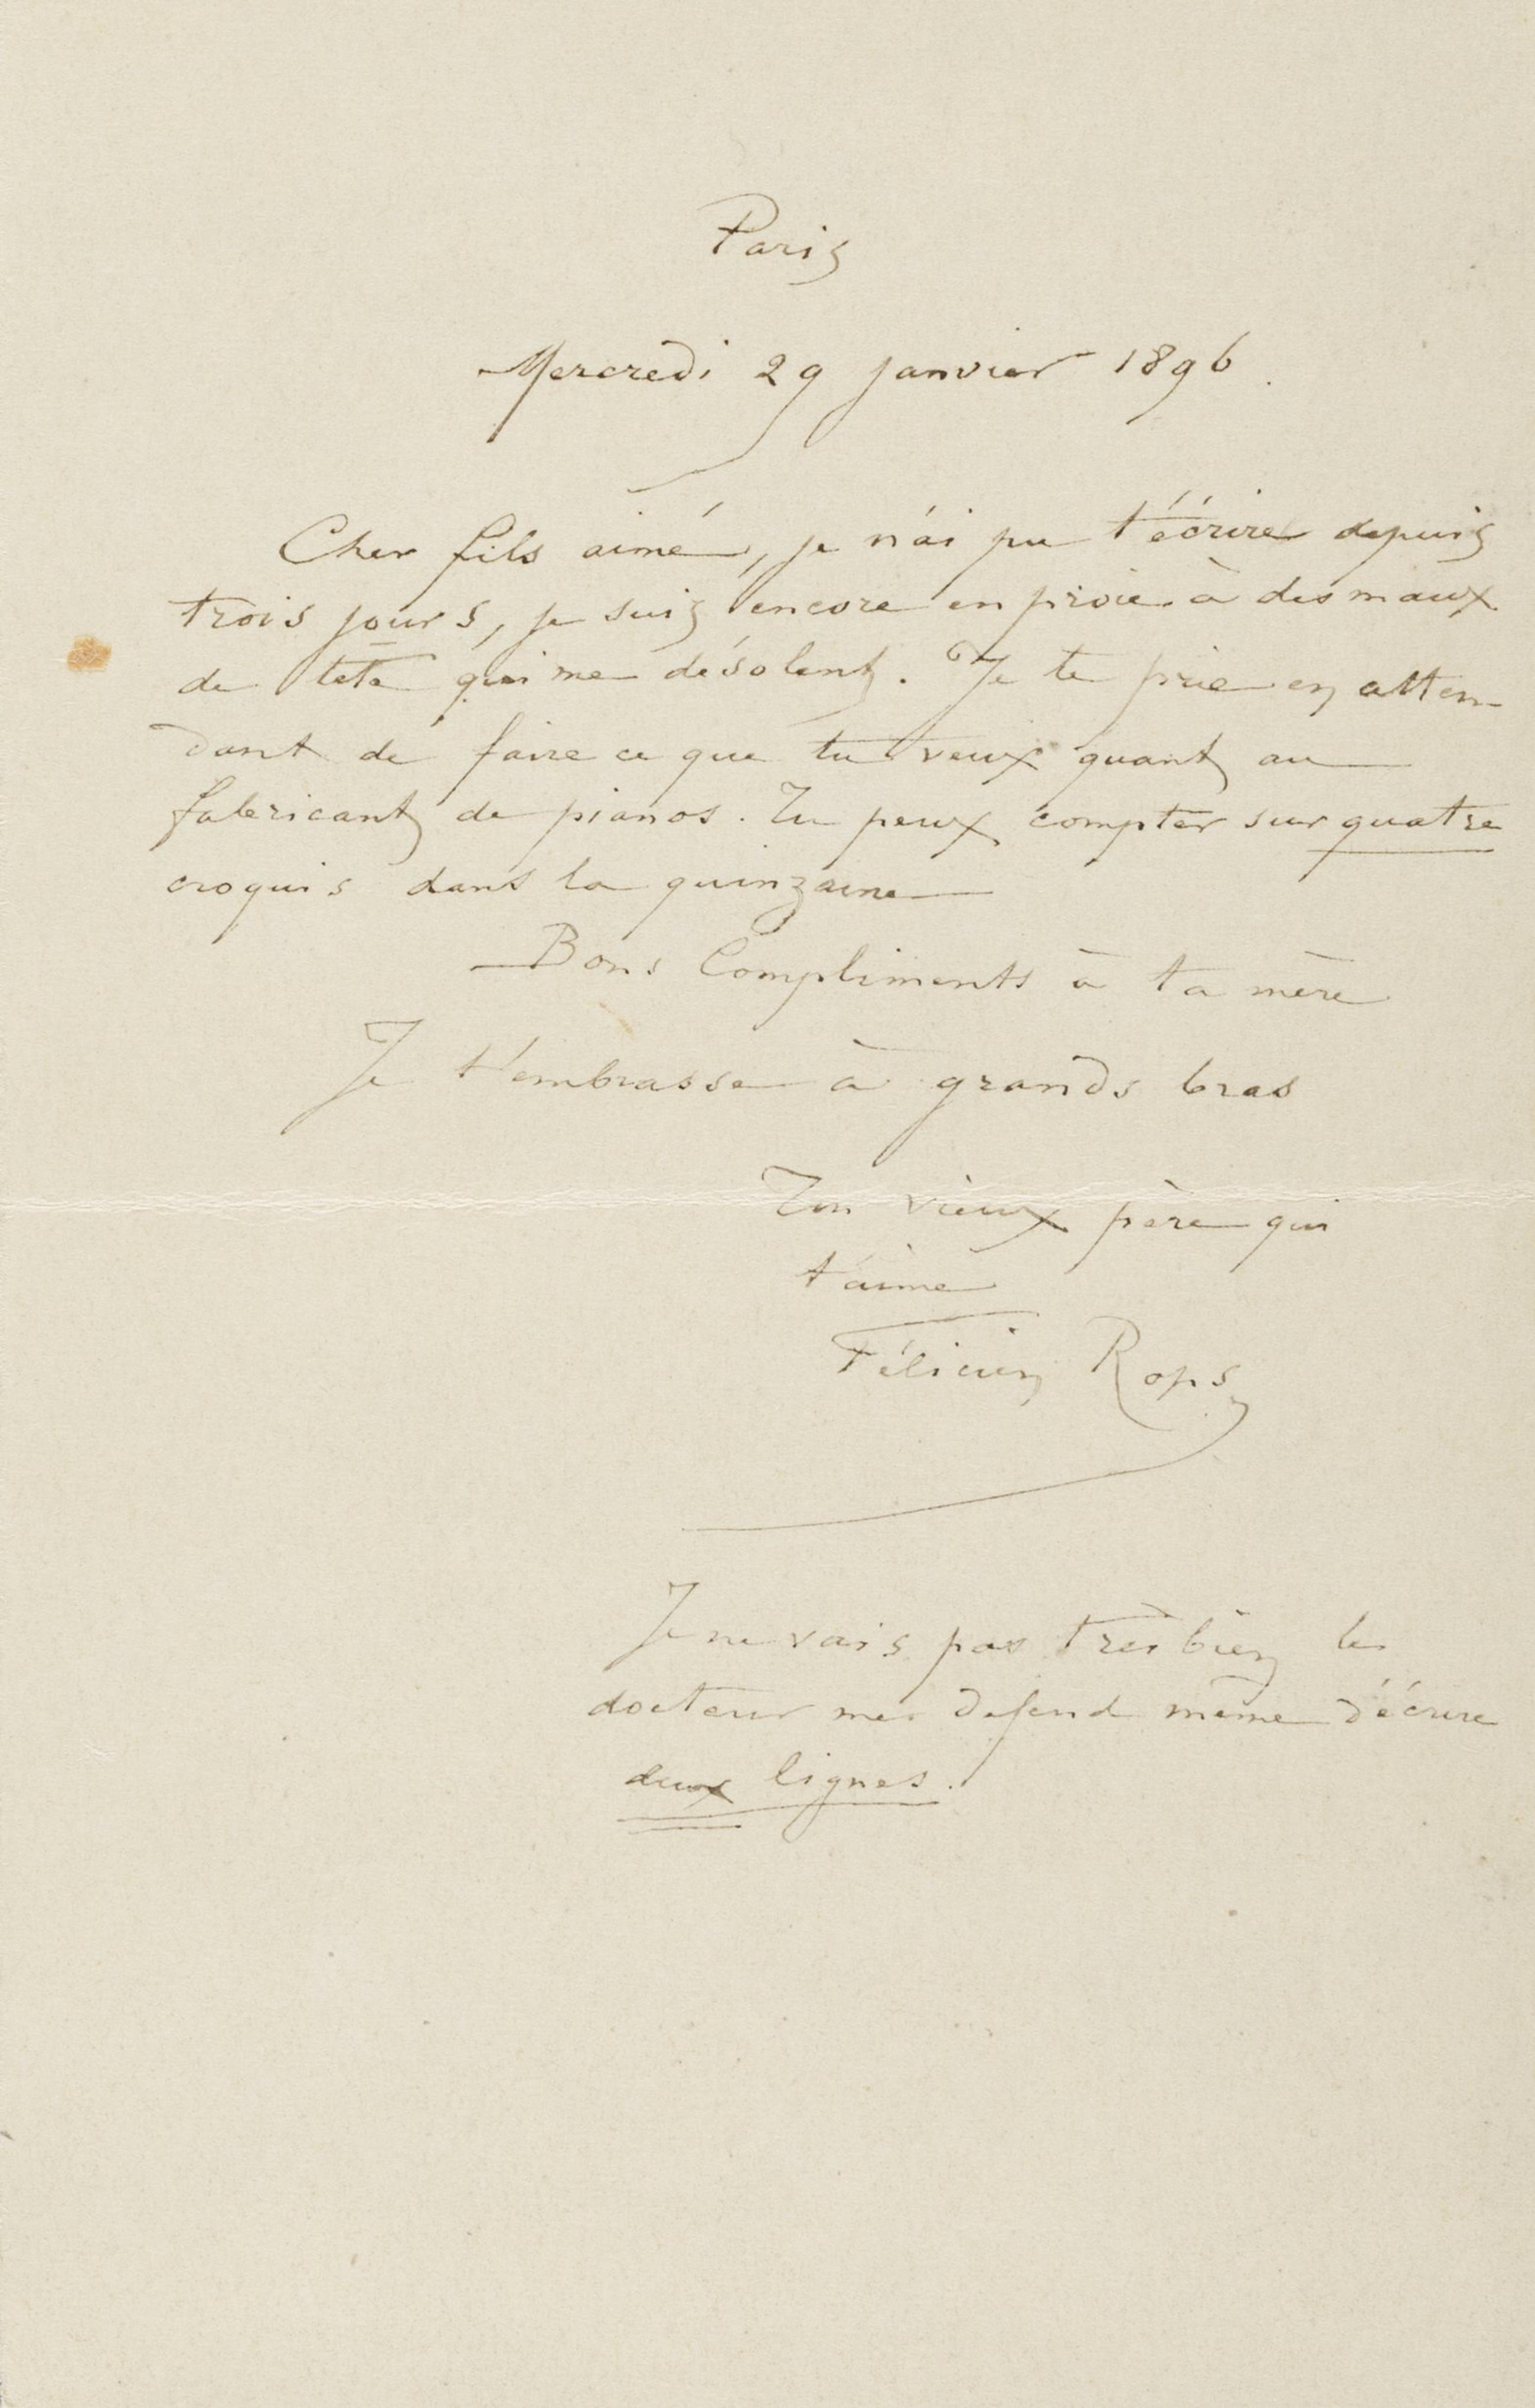 Paris
Mercredi 29 janvier 1896.
Cher fils aimé, je n'ai pu t'écrire depuis
trois jours, je suis encore en proie à des maux
de tête qui me désolent. Je te prie en atten-
dant de faire ce que tu veux quant au
fabricant de pianos. Tu peux compter sur quatre
croquis dans la quinzaine
Bons Compliments à ta mère
Je t'embrasse à grands bras
Ton vieux père qui
t'aime
Félicien Rops
Je ne vais pas très bien le
docteur me défend même d'écrire
deux lignes.